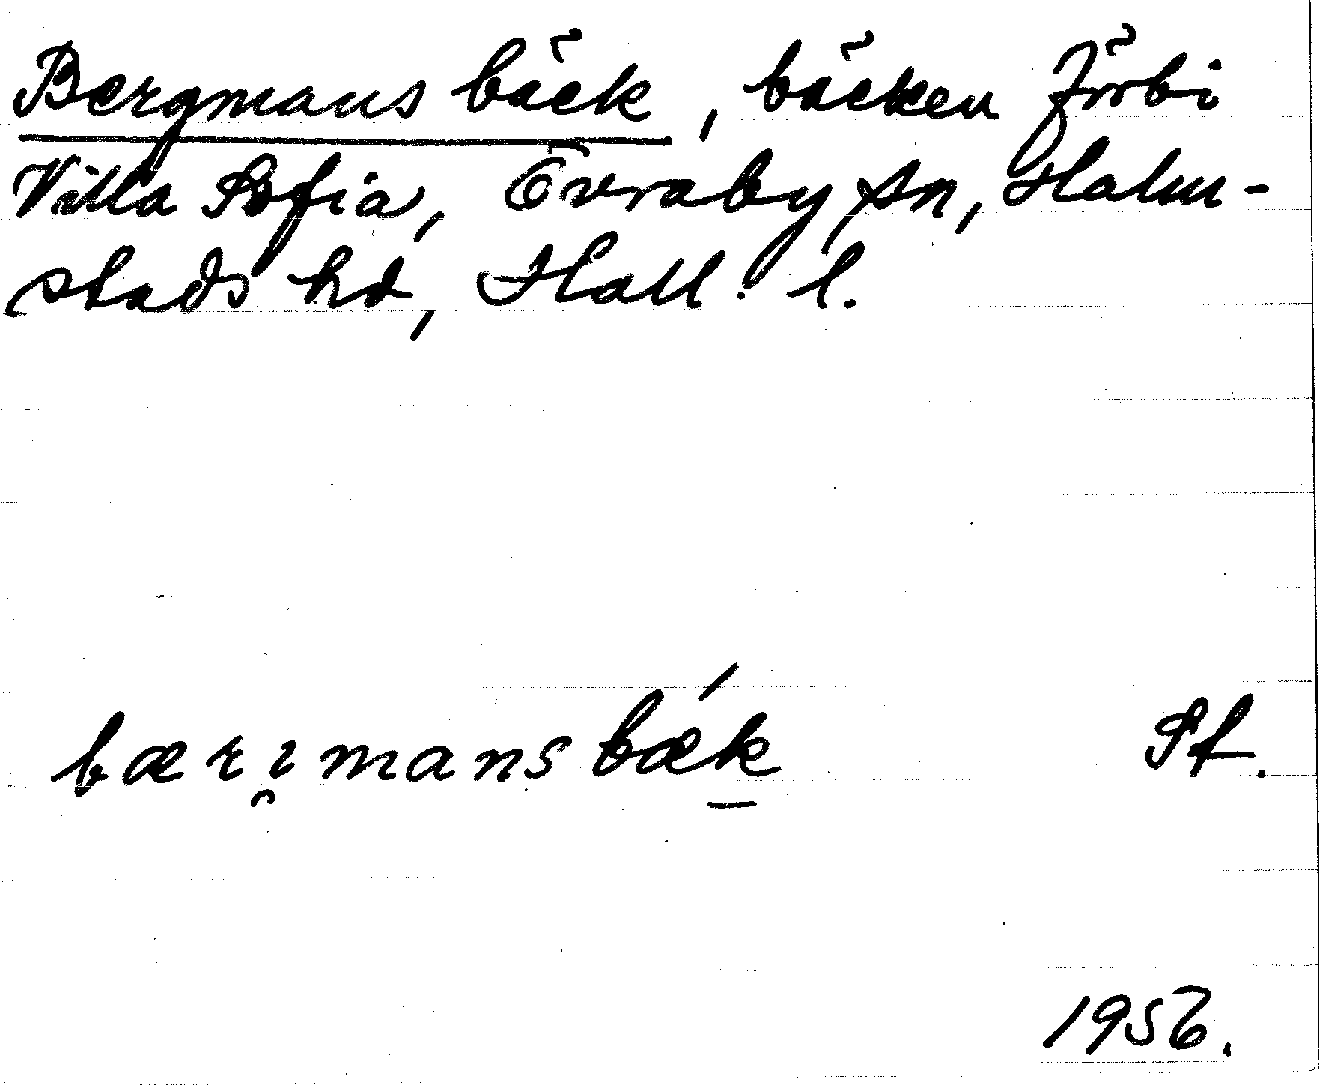 Bergmans bäck, bäcken förbi
Villa Sofia, Övraby sn, Halm-
stads hd, Hall. l.
bærı̯mansbæ̀k Sf.
1956.